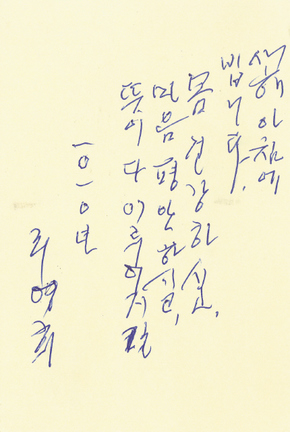 새해 아침에
빕니다.
몸 건강하시고,
마음 평안하시고,
뜻이 다 이루어지길
二〇一〇년
리영희